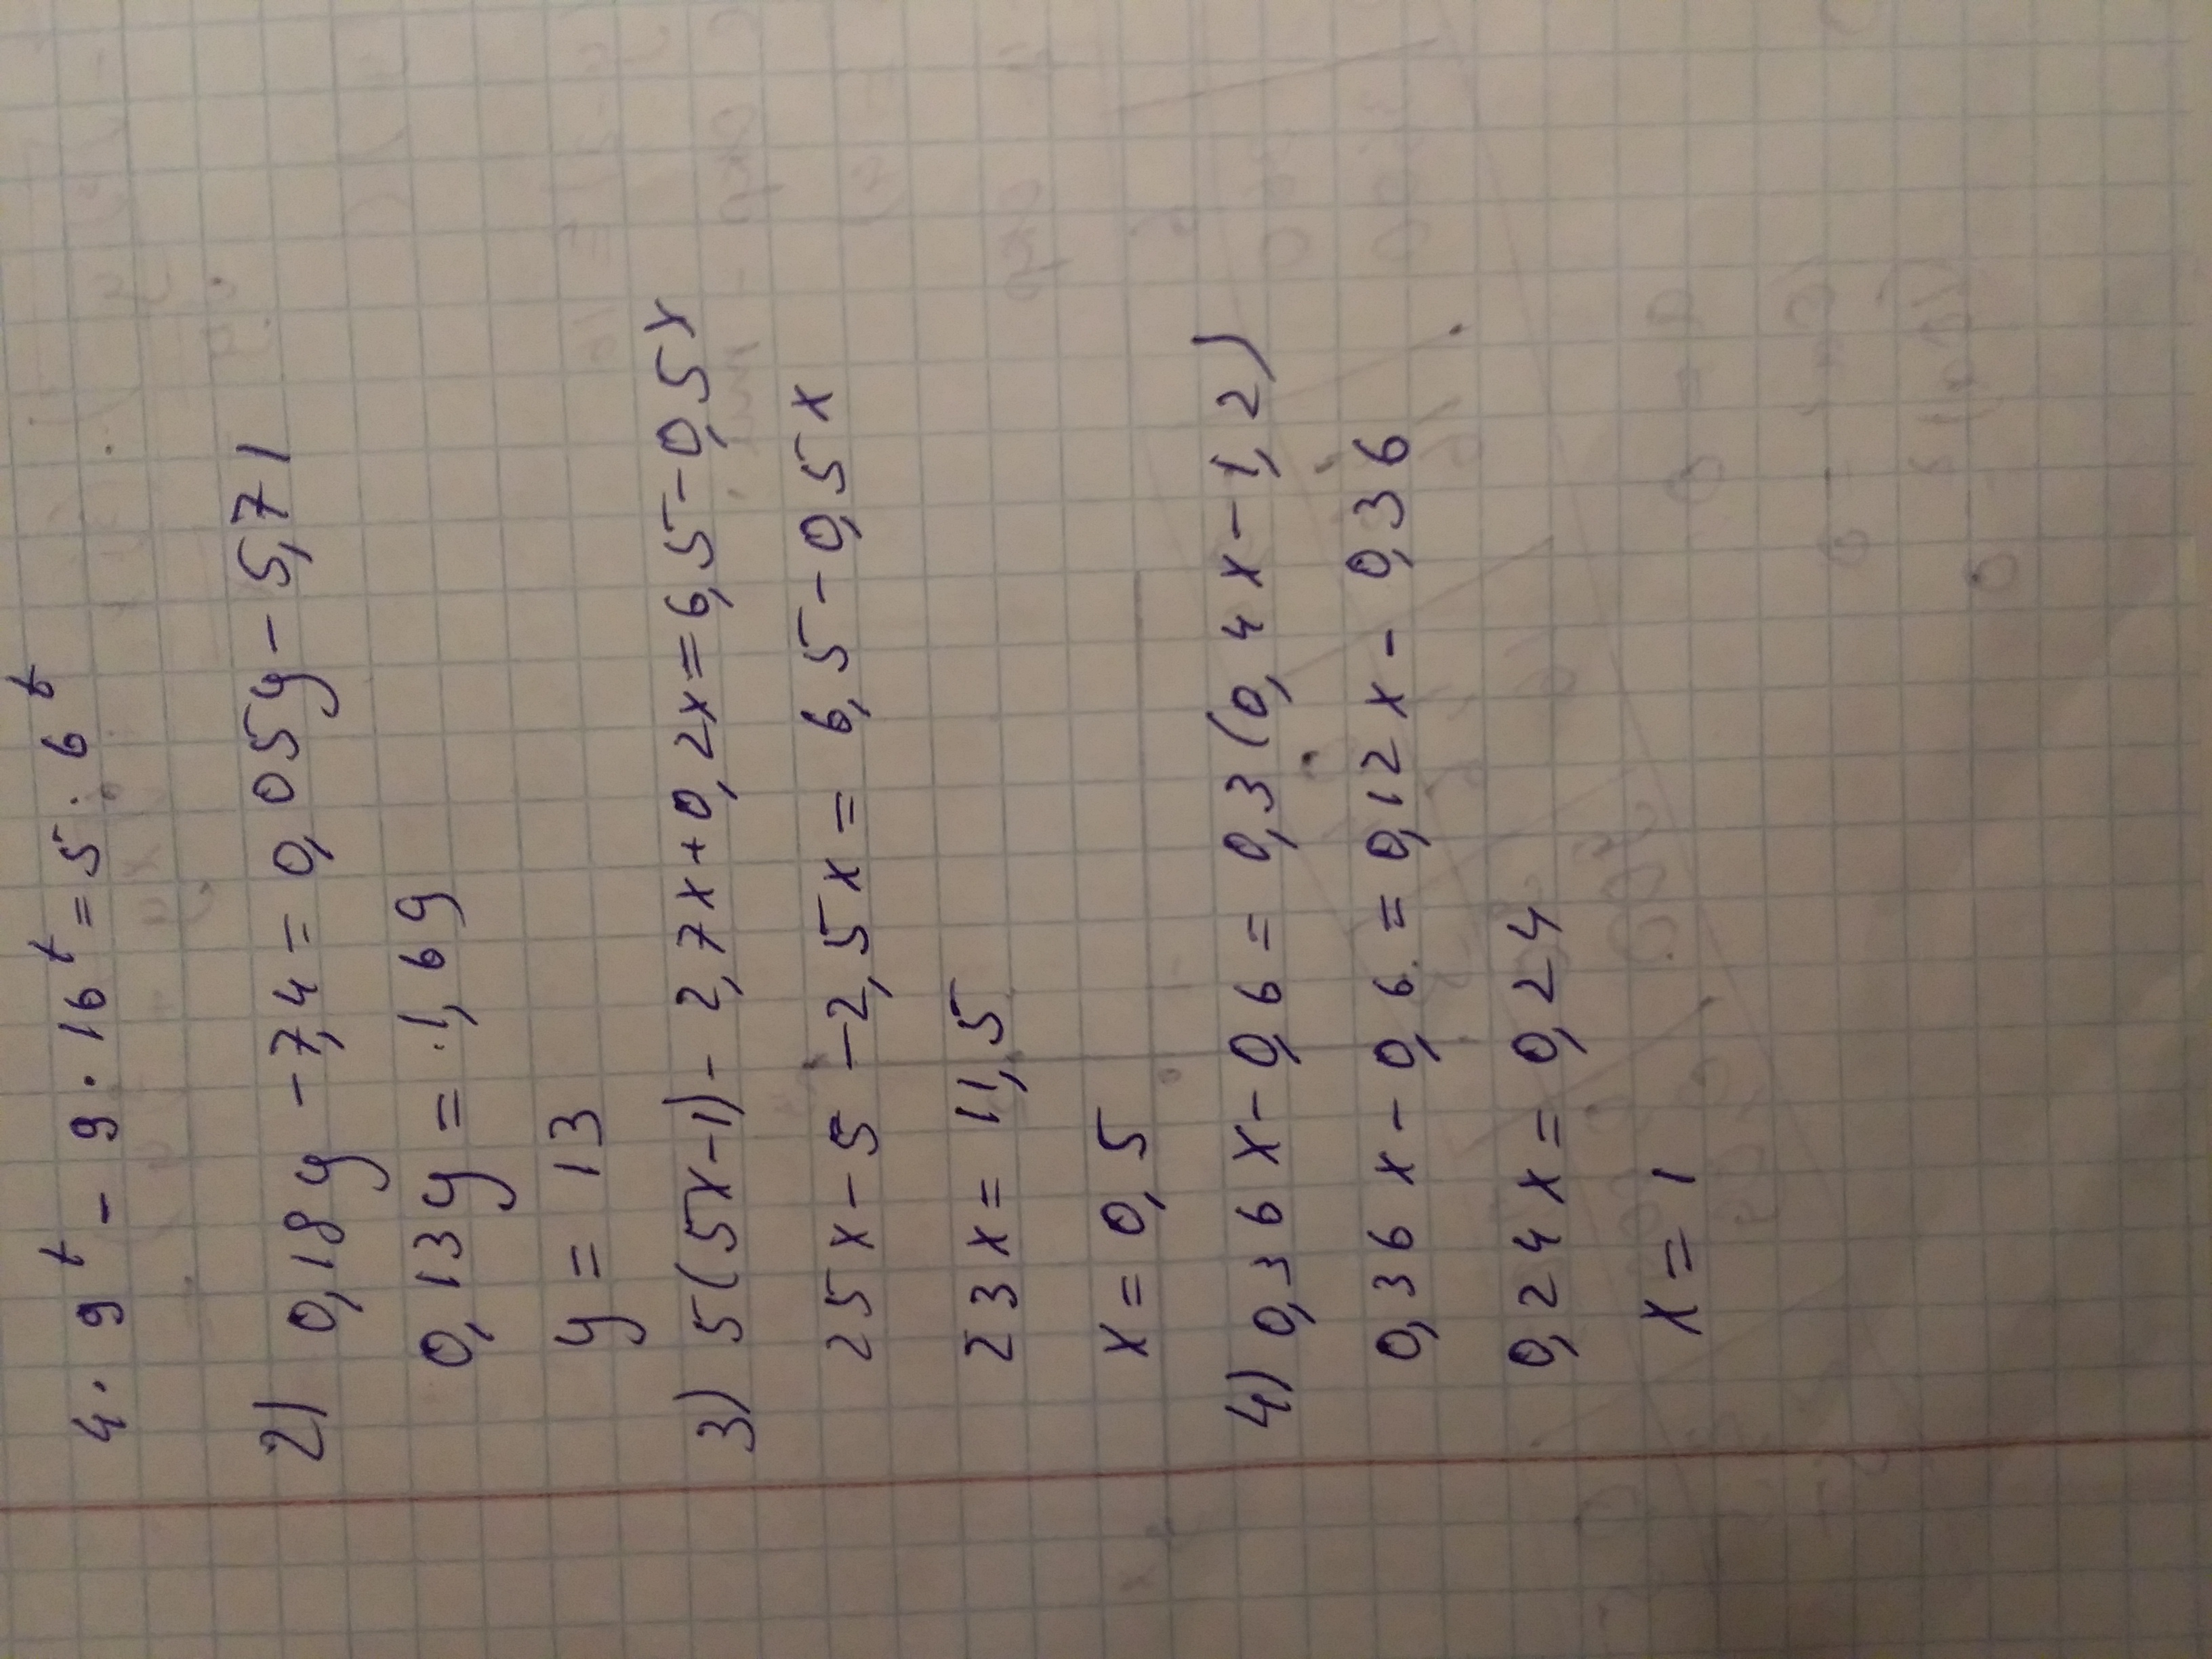 4 · 9^t - 9 · 16^t = 5 · 6^t
2) 0,18y - 7,4 = 0,05y - 5,71
0,13y = 1,69
y = 13
3) 5(5x-1) - 2,7x + 0,2x = 6,5 - 0,5x
25x - 5 - 2,5x = 6,5 - 0,5x
23x = 11,5
x = 0,5
4) 0,36x - 0,6 = 0,3(0,4x - 1,2)
0,36x - 0,6 = 0,12x - 0,36
0,24x = 0,24
x = 1